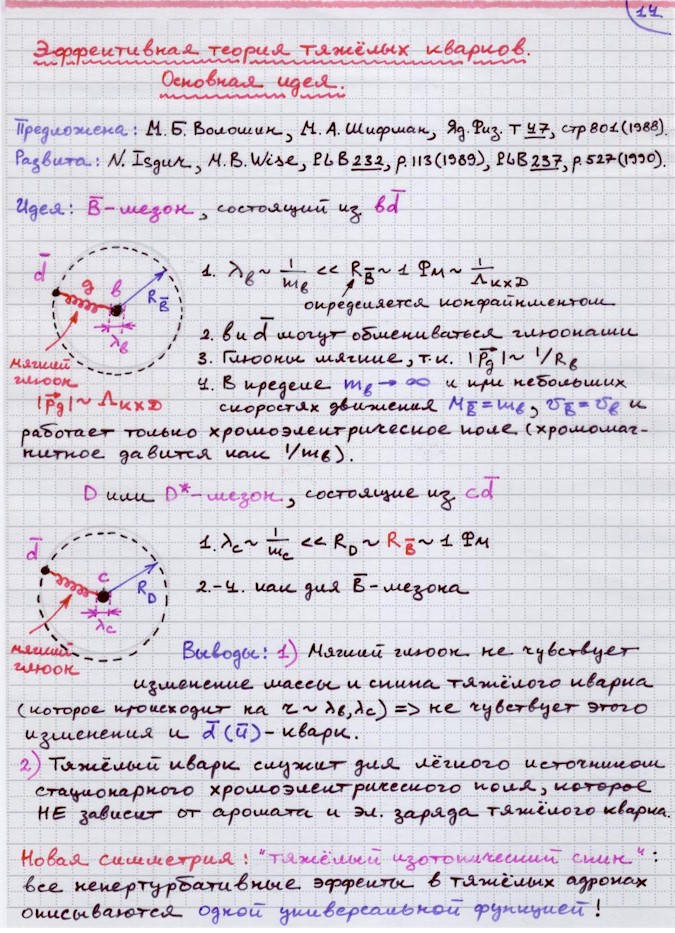 14
Эффективная теория тяжёлых кварков.
Основная идея.
Предложена: М.Б. Волошин, М.А. Шифман, Яд. Физ. т 47, стр 801 (1988).
Развита: N. Isgur, M.B. Wise, PLB 232, p. 113 (1989), PLB 237, p. 527 (1990).
Идея: B̅-мезон, состоящий из bd̅
d̅ g b R_B̅ λ_b
мягкий
глюон
|p⃗_g| ~ Λ_КХД
1. λ_b ~ 1/m_b << R_B̅ ~ 1 Фм ~ 1/Λ_КХД
определяется конфайнментом
2. b и d̅ могут обмениваться глюонами
3. Глюоны мягкие, т.к. |p⃗_g| ~ 1/R_b
4. В пределе m_b → ∞ и при небольших
скоростях движения M_B̅ = m_b, v_B̅ = v_b и
работает только хромоэлектрическое поле (хромомаг-
нитное давится как 1/m_b).
D или D*-мезон, состоящие из cd̅
d̅ c R_D λ_c
мягкий
глюон
1. λ_c ~ 1/m_c << R_D ~ R_B̅ ~ 1 Фм
2.-4. как для B̅-мезона
Выводы: 1) Мягкий глюон не чувствует
изменение массы и спина тяжёлого кварка
(которое происходит на r ~ λ_b, λ_c) => не чувствует этого
изменения и d̅ (u̅)-кварк.
2) Тяжёлый кварк служит для лёгкого источником
стационарного хромоэлектрического поля, которое
НЕ зависит от аромата и эл. заряда тяжёлого кварка.
Новая симметрия: "тяжёлый изотопический спин":
все непертурбативные эффекты в тяжёлых адронах
описываются одной универсальной функцией!